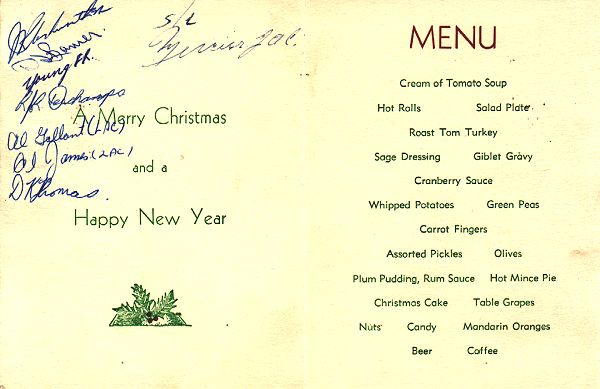 S/L
Mercier J.A.C.
Young F.R.
Deschamps
A Merry Christmas
Al Gallant (LAC)
Al James (LAC)
and a
D K Thomas.
Happy New Year
MENU
Cream of Tomato Soup
Hot Rolls Salad Plate
Roast Tom Turkey
Sage Dressing Giblet Gravy
Cranberry Sauce
Whipped Potatoes Green Peas
Carrot Fingers
Assorted Pickles Olives
Plum Pudding, Rum Sauce Hot Mince Pie
Christmas Cake Table Grapes
Nuts Candy Mandarin Oranges
Beer Coffee